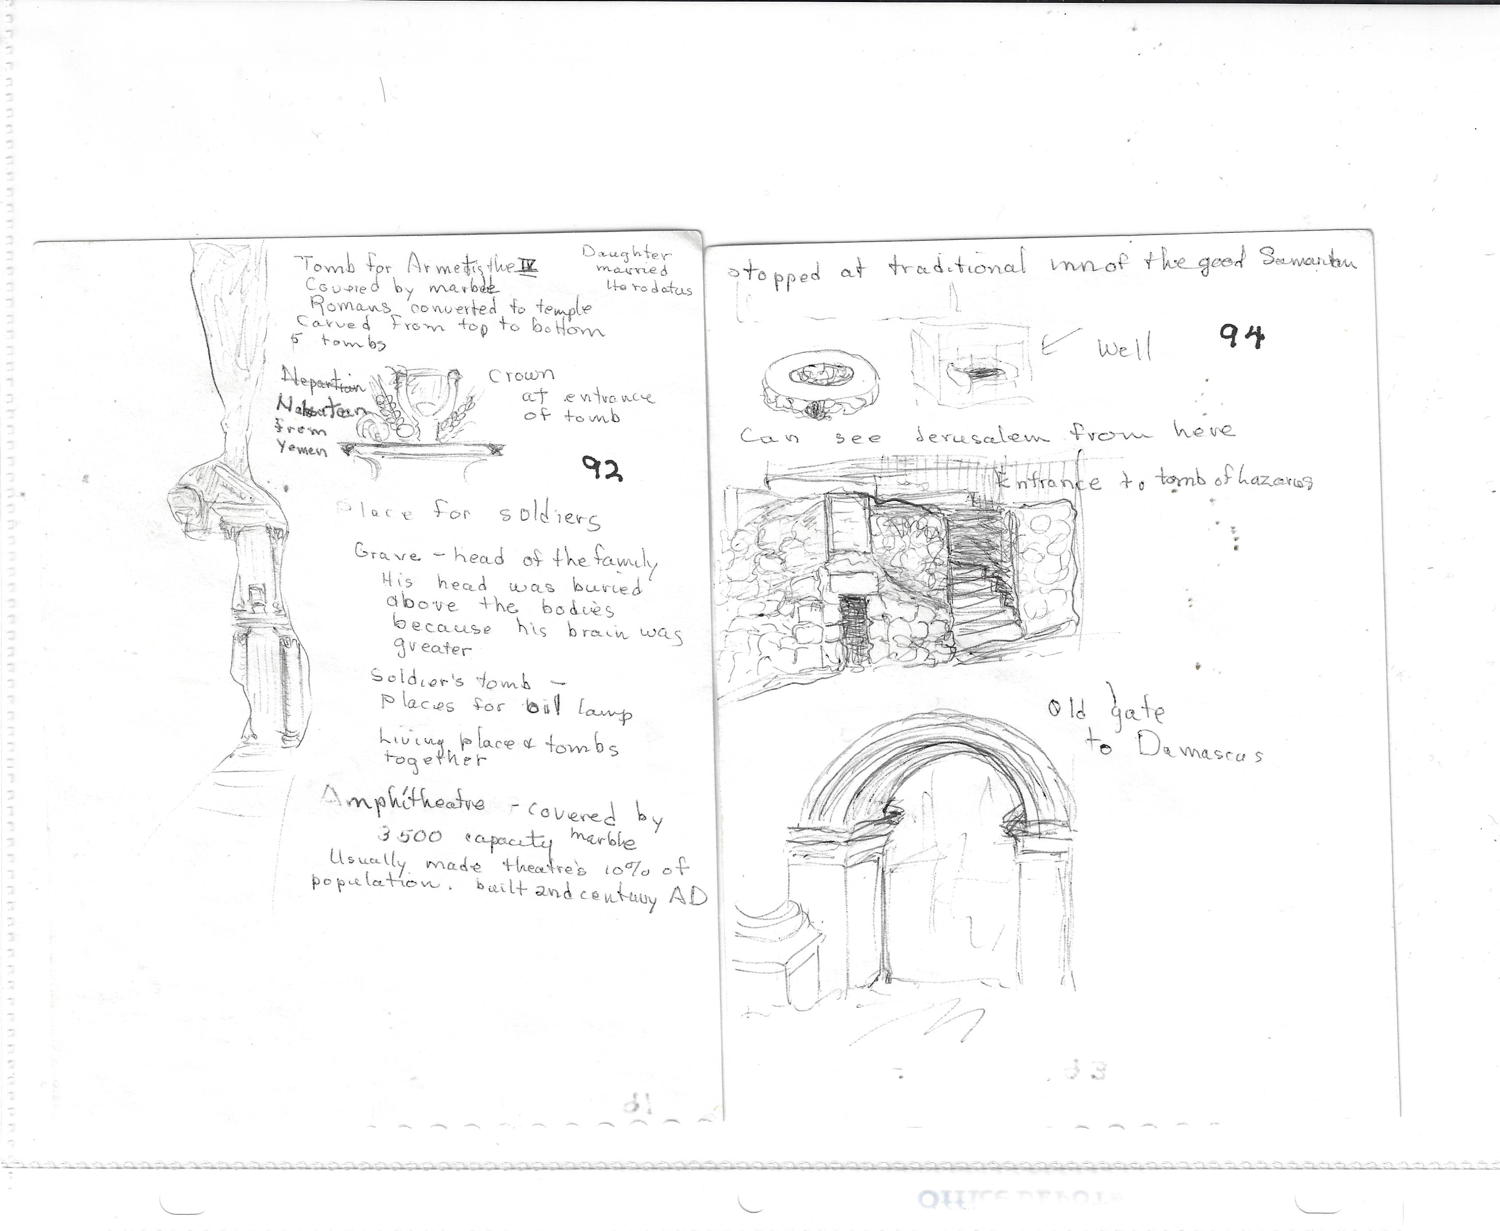 Tomb for Armetis the IV
Covered by marble
Romans converted to temple
Carved from top to bottom
5 tombs
Daughter
married
Herodatus
Nepartian
Nabatean
from
Yemen
Crown
at entrance
of tomb
92
Place for soldiers
Grave - head of the family
His head was buried
above the bodies
because his brain was
greater
Soldier's tomb -
places for oil lamp
Living place & tombs
together
Amphitheatre - covered by
marble
3500 capacity
Usually made theatre's 10% of
population. built 2nd century AD
stopped at traditional inn of the good Samaritan
94
Well
Can see Jerusalem from here
Entrance to tomb of Lazarus
Old gate
to Damascus
Office DEPOT